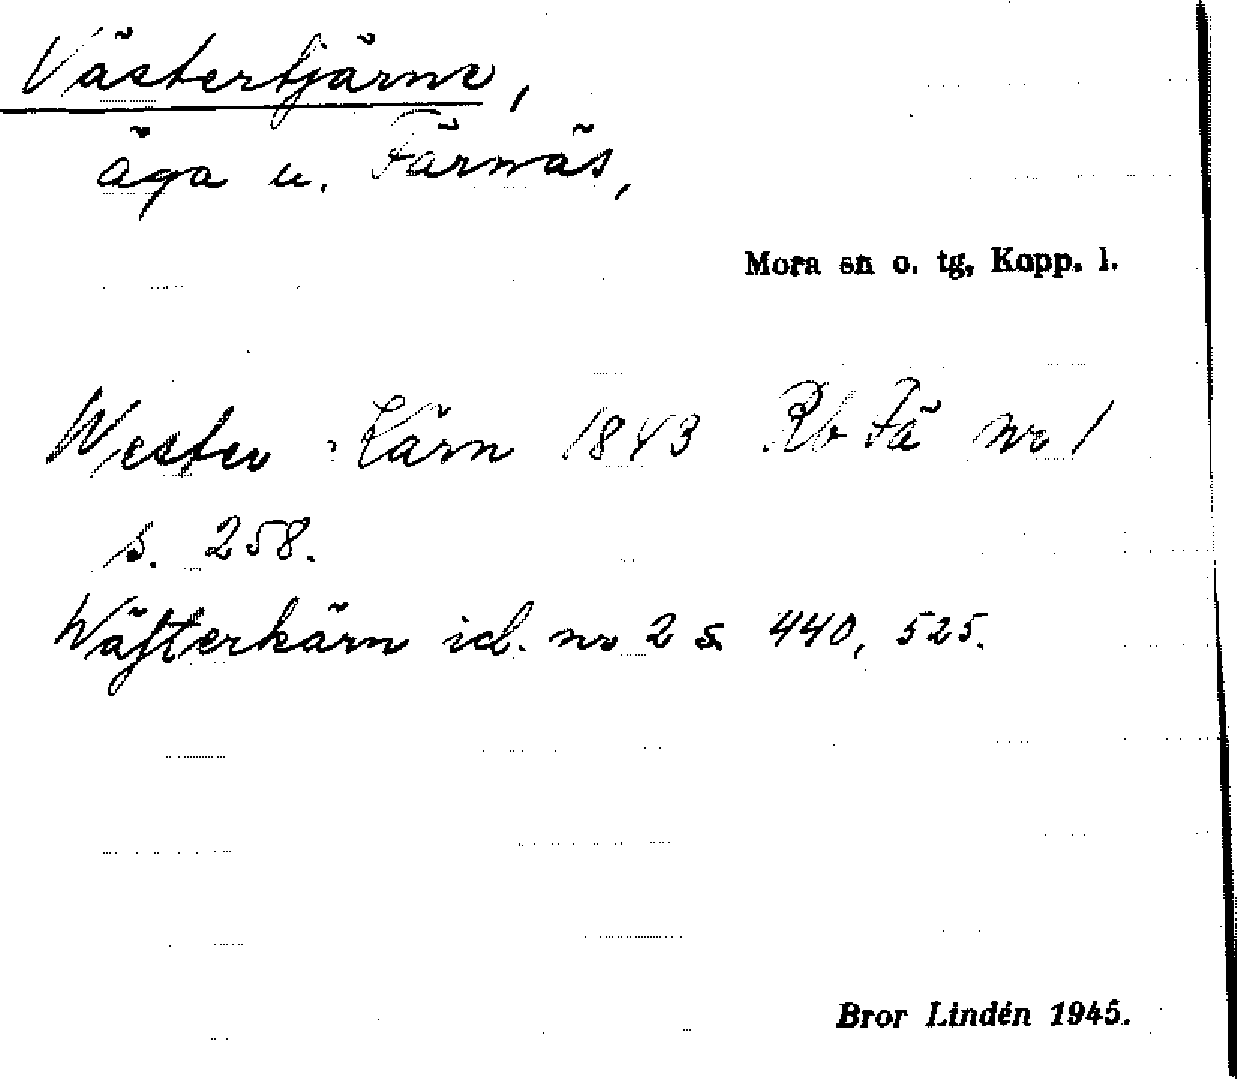 Västertjärne,
äga u. Färnäs,
Mora sn o. tg, Kopp. l.
Wester : Kärn 1843 Rb Fä nr 1
s. 258.
Wäſterkärn id. nr 2 s. 440, 525.
Bror Lindén 1945.